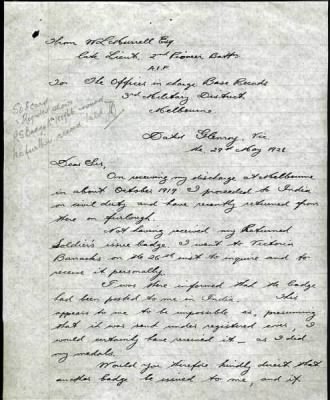 From W L Murrell Esq
Late Lieut. 2nd Pioneer Battn
A.I.F.
To The Officer in charge Base Records
3rd Military District
Melbourne
Dated Glenroy, Vic
the 29th May 1922
Dear Sir,
On receiving my discharge at Melbourne
in about October 1919 I proceeded to India
on civil duty and have recently returned from
there on furlough.
Not having received my Returned
Soldier's issue badge, I went to Victoria
Barracks on the 26th inst to inquire and to
receive it personally.
I was there informed that the badge
had been posted to me in India. This
appears to me to be impossible as, presuming
that it was sent under registered cover, I
would certainly have received it – as I did
my medals.
Would you therefore kindly direct that
another badge be issued to me, and if